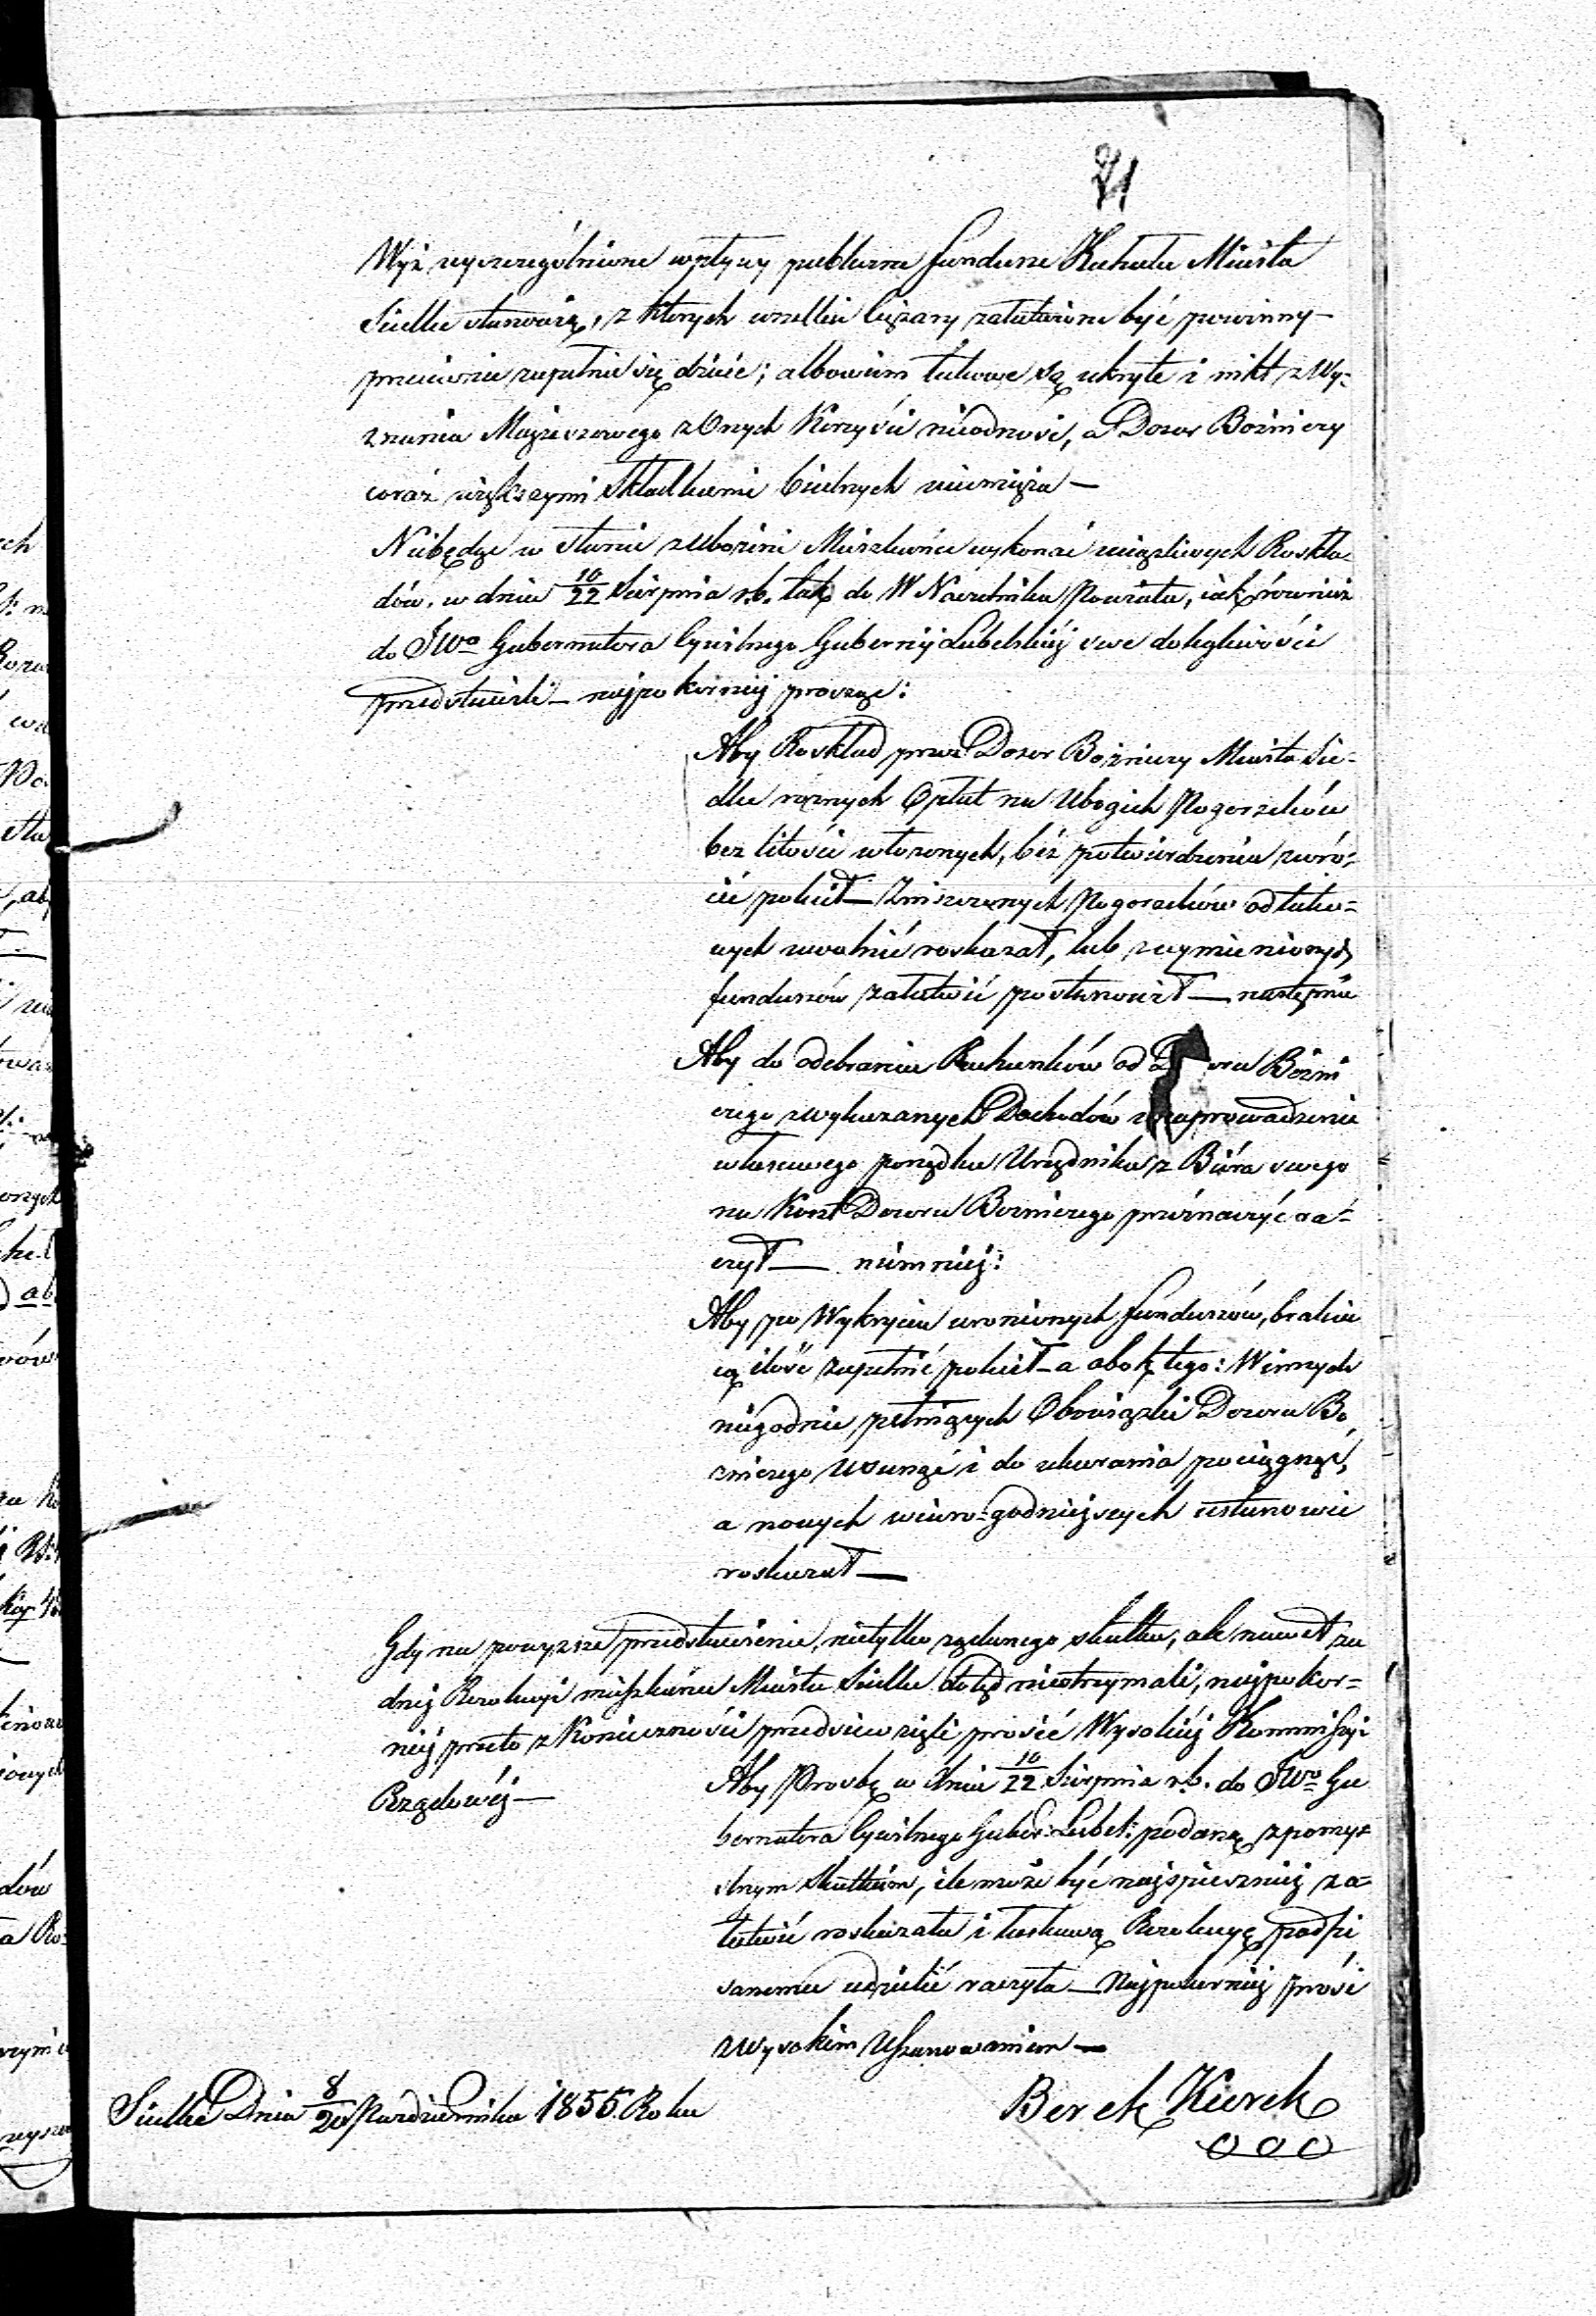 21
Wyż wyszczególnione wpływy publiczne fundusze Kahału Miasta
Siedlce stanowią, z których wszelkie ciężary załatwione być powinny –
przeciwnie zupełnie się dzieie; albowiem takowe są ukryte i nikt z Wy-
znania Mojżeszowego z Onych Korzyści nieodnosi, a Dozor Bóżniczy
coraz większymi składkami biednych uciemięża –
Niebędąc w stanie zubożeni Mieszkańce wykonać uciążliwych Roskła-
dów, w dniu 10/22 Sierpnia r.b. tak do W Naczelnika Powiatu, iak również
do JWo Gubernatora Cywilnego Gubernij Lubelskiéj swe dolegliwości
przedstawili – najpokorniej prosząc:
Aby Roskład przez Dozor Bóżniczy Miasta Sie-
dlce roznych Opłat na Ubogich Pogorzelców
bez litości włożonych, béz potwierdzenia zwró-
cić polecił – Zniszczonych Pogorzelców od tako-
wych uwolnić roskazał, lub z wymienionych
funduszów załatwić postanowił – następnie
Aby do odebrania Rachunków od D oru Bóżni
czego z wykazanych Dochodów zaprowadzenia
właściwego porządku Urzędnika z Biura swego
na Koszt Dozoru Bożniczego przéznaczyć ra-
czył – niemniej:
Aby po Wykryciu uronionych funduszów, brakuią
cą ilość zupełnić polecił – a obok tego: Winnych
niegodnie pełniących Obowiązki Dozoru Bo
żniczego Usunąć i do ukarania pociągnąć,
a nowych wiaro-godniejszych ustanowić
roskazał –
Gdy na powyższe przedstawienie, nietylko żądanego skutku, ale nawet ża
dnéj Rezolucyi mieszkańce Miasta Siedlce dotąd nieotrzymali, najpokor-
niéj przeto z Konieczności przedsiewzięli prosić Wysokiéj Kommissyi
Rządowéj –
Aby Prosbę w dniu 10/22 Sierpnia r.b. do JWo Gu
bernatora Cywilnego Guber: Lubel: podaną z pomy-
slnym skutkiem, ile może być najspieszniéj za-
łatwić roskazała i łaskawą Rezolucyę podpi
sanemu udzielić raczyła – Najpokorniéj prosi
z wysokim Uszanowaniem –
Siedlce Dnia 8/20 Października 1855 Roku
Berek Kurek
OOO